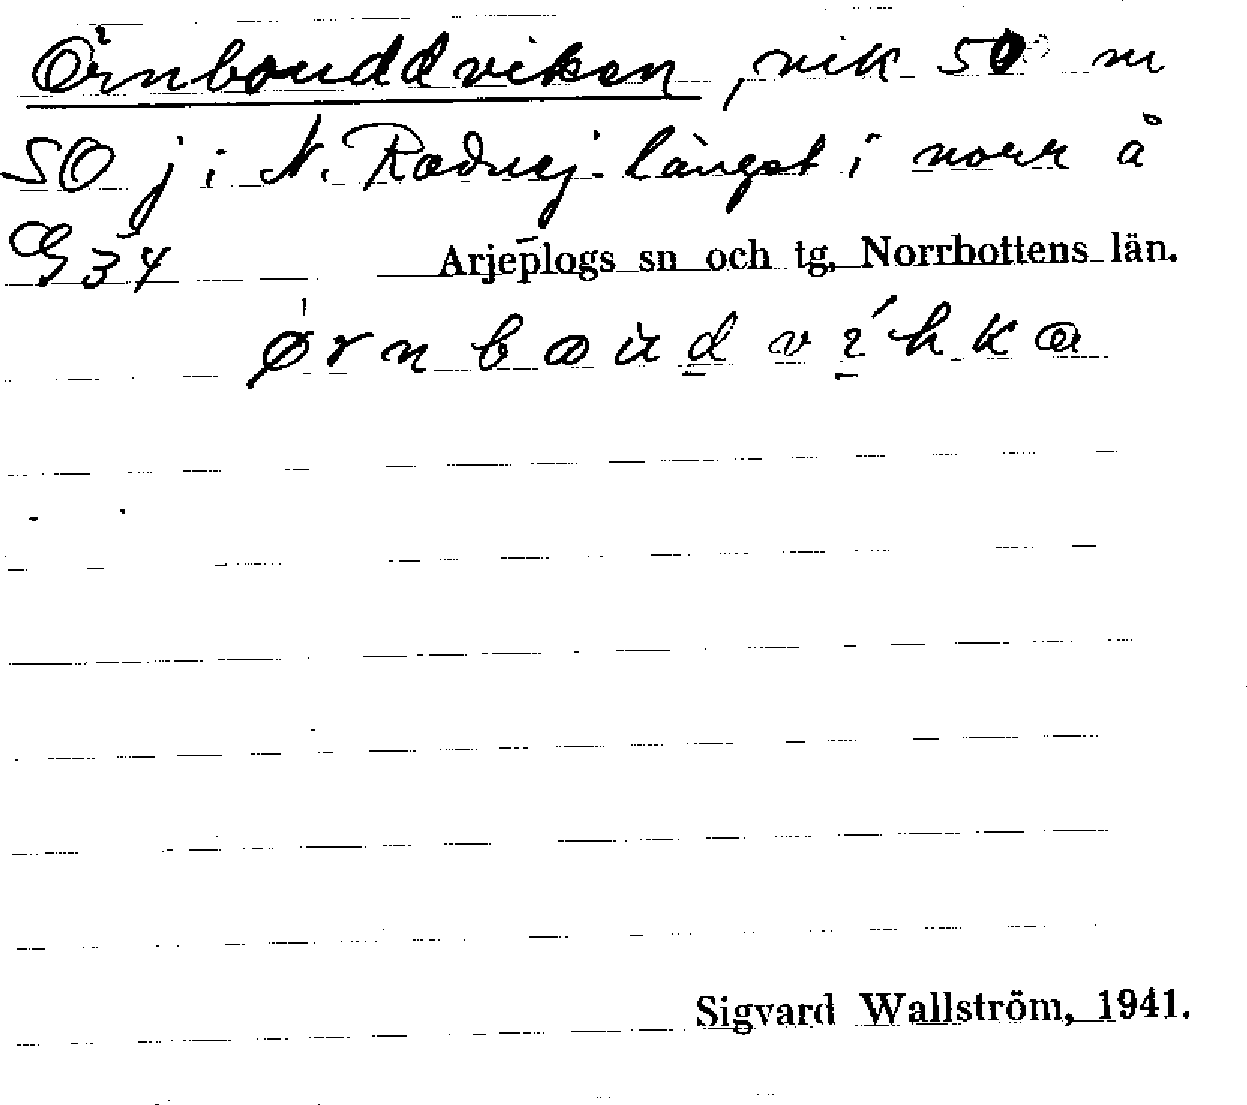 Örnbouddviken, vik 50 m
SO j i N. Radnej. längst i norr å
G 34 Arjeplogs sn och tg, Norrbottens län.
ørnboudvíkka
Sigvard Wallström, 1941.